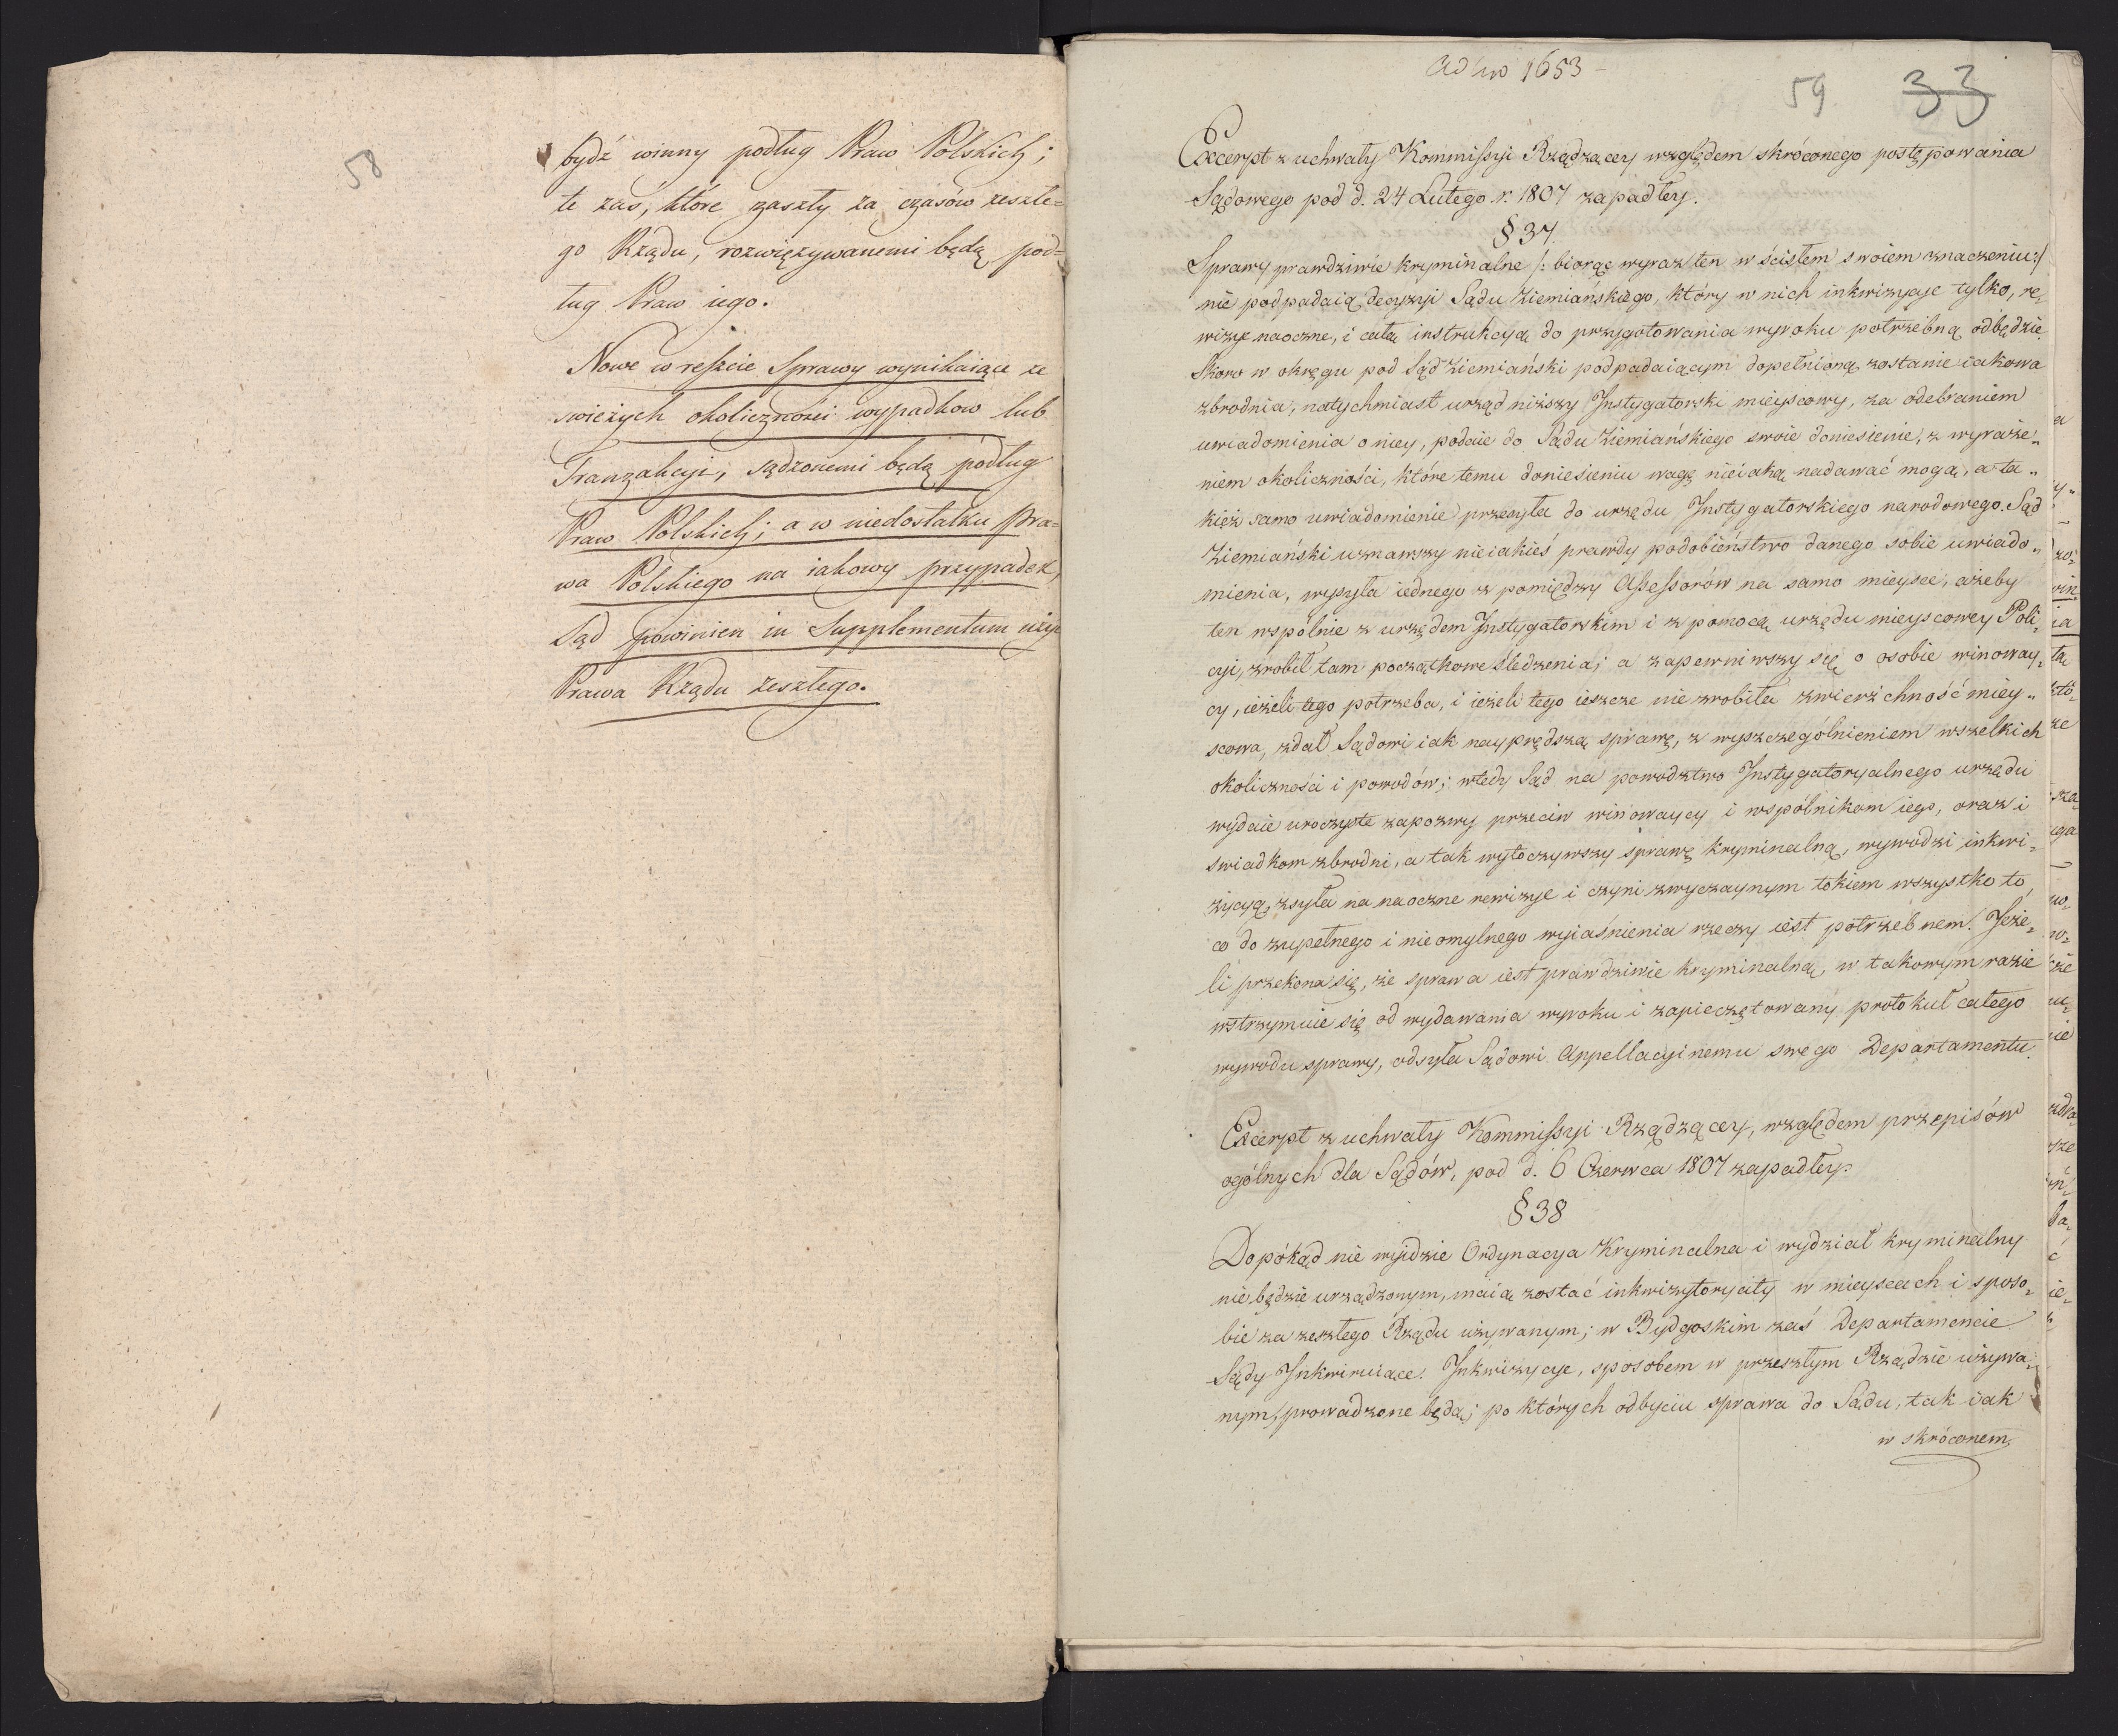 58
bydź winny podług Praw Polskich;
te zas, które zaszły za czasów zeszłe=
go Rządu, rozwięzywanemi będą pod=
ług Praw iego.
Nowe w reszcie Sprawy wynikaiące ze
swieżych okoliczności wypadkow lub
Tranzakcyi, sądzonemi będą podług
Praw Polskich; a w niedostatku Pra=
wa Polskiego na iakowy przypadek,
Sąd powinien in Supplementum użyć
Prawa Rządu zeszłego.
ad 1653 –
59 33
Excerpt z uchwały Kommissyi Rządzącey względem skróconego postępowania
Sądowego pod d. 24 Lutego r. 1807 zapadłey.
§ 37.
Sprawy prawdziwie kryminalne /: biorąc wyraz ten w ścisłem swoiem znaczeniu:/
nie podpadaią decyzyi Sądu Ziemiańskiego, który w nich inkwizycye tylko, re„
wizye naoczne, i całą instrukcyą do przygotowania wyroku potrzebną odbędzie.
Skoro w okręgu pod Sąd Ziemiański podpadaiącym dopełnioną zostanie iakowa
zbrodnia, natychmiast urząd niższy Instygatorski mieyscowy, za odebraniem
uwiadomienia o niey, podaie do Sądu Ziemiańskiego swoie doniesienie, z wyraże„
niem okoliczności, które temu doniesieniu wagę nieiaką nadawać mogą, a ta„
kięż samo uwiadomienie przesyła do urzędu Instygatorskiego narodowego. Sąd
Ziemiański uznawszy nieiakieś prawdy podobieństwo danego sobie uwiado„
mienia, wysyła iednego z pomiędzy Assessorów na samo mieysce, ażeby
ten wspólnie z urzędem Instygatorskim i z pomocą urzędu mieyscowey Poli„
cyi, zrobił tam początkowe śledzenia; a zapewniwszy się o osobie winoway„
cy, ieżeli tego potrzeba, i ieżeli tego ieszcze nie zrobiła zwierzchność miey„
scowa, zdał Sądowi iak nayprędszą sprawę, z wyszczególnieniem wszelkich
okoliczności i powodów; wtedy Sąd na powodztwo Instygatoryalnego urzędu
wydaie uroczyste zapozwy przeciw winowaycy i wspólnikom iego, oraz i
swiadkom zbrodni, a tak wytoczywszy sprawę kryminalną, wywodzi inkwi„
zycyą, zsyła na naoczne rewizye i czyni zwyczaynym tokiem wszystko to,
co do zupełnego i nieomylnego wyiaśnienia rzeczy iest potrzebnem. Ieże„
li przekona się, że sprawa iest prawdziwie kryminalną, w takowym razie
wstrzymuie się od wydawania wyroku i zapieczętowany protokuł całego
wywodu sprawy, odsyła Sądowi Appellacyinemu swego Departamentu.
Excerpt z uchwały Kommissyi Rządzącey, względem przepisów
ogólnych dla Sądów, pod d. 6 Czerwca 1807 zapadłey.
§ 38
Dopókąd nie wyidzie Ordynacya Kryminalna i wydział kryminalny
nie będzie urządzonym, maią zostać inkwizytoryaty w mieyscach i sposo„
bie za zeszłego Rządu używanym; w Bydgoskim zaś Departamencie
Sądy Inkwiruiące. Inkwizycye, sposobem w przeszłym Rządzie używa„
nym, prowadzone będą; po których odbyciu sprawa do Sądu, tak iak
w skróconem